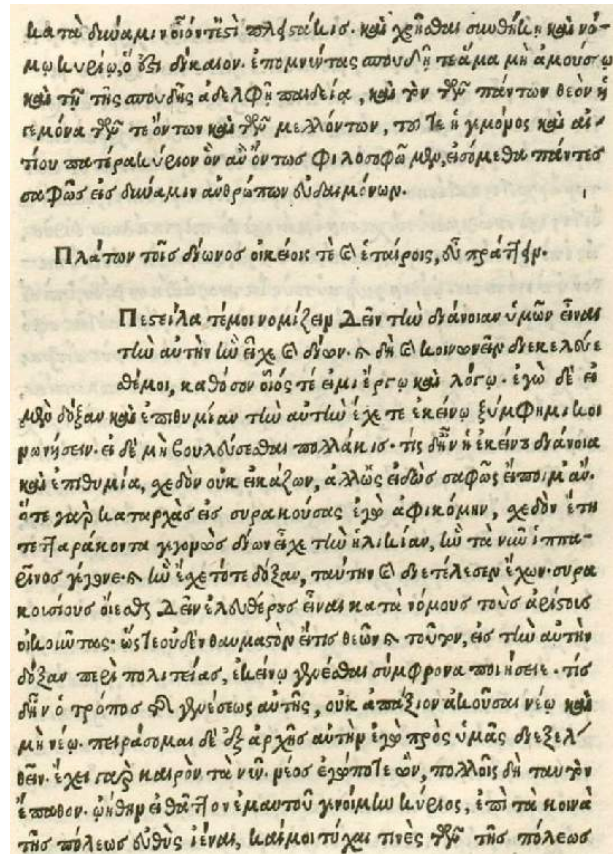 κατὰ δύναμιν οἷόντέ ἐστὶ πλειστάκις. καὶ χρῆσθαι συνθήκῃ καὶ νό-
μῳ κυρίῳ, ὅ ἐστι δίκαιον. ἐπομνύντας σπουδῇ τε ἅμα μὴ ἀμούσῳ
καὶ τῇ τῆς σπουδῆς ἀδελφῇ παιδείᾳ, καὶ τὸν τῶν πάντων θεὸν ἡ
γεμόνα τῶν τε ὄντων καὶ τῶν μελλόντων, τοῦ τε ἡγεμόνος καὶ αἰ-
τίου πατέρα κύριον ὃν ἂν ὄντως φιλοσοφῶμεν, εἰσόμεθα πάντες
σαφῶς εἰς δύναμιν ἀνθρώπων εὐδαιμόνων.
Πλάτων τοῖς δίωνος οἰκείοις τὲ καὶ ἑταίροις, εὖ πράττειν.
Πεστείλατέ μοι νομίζειν Δεῖν τὴν διάνοιαν ὑμῶν εἶναι
τὴν αὐτὴν ἣν εἶχε καὶ δίων. καὶ δὴ καὶ κοινωνεῖν διεκελεύε
σθέ μοι, καθόσον οἷός τέ εἰμι ἔργῳ καὶ λόγῳ. ἐγὼ δὲ εἰ
μὲν δόξαν καὶ ἐπιθυμίαν τὴν αὐτὴν ἔχετε ἐκείνῳ ξύμφημι κοι
νωνήσειν. εἰ δὲ μὴ βουλεύσεσθαι πολλάκις. τίς δ' ἦν ἡ ἐκείνου διάνοια
καὶ ἐπιθυμία, σχεδὸν οὐκ εἰκάζων, ἀλλ' ὡς εἰδὼς σαφῶς εἴποιμ' ἄν.
ὅτε γὰρ καταρχὰς εἰς συρακούσας ἐγὼ ἀφικόμην, σχεδὸν ἔτη
τετταράκοντα γεγονὼς δίων εἶχε τὴν ἡλικίαν, ἣν τὰ νῦν ἱππα-
ρῖνος γέγονε. καὶ ἣν ἔσχε τότε δόξαν, ταύτην καὶ διετέλεσεν ἔχων. συρα
κουσίους οἴεσθαι Δεῖν ἐλευθέρους εἶναι κατὰ νόμους τοὺς ἀρίστους
οἰκοῦντας. ὥστε οὐδὲν θαυμαστὸν εἴ τις θεῶν καὶ τοῦτον, εἰς τὴν αὐτὴν
δόξαν περὶ πολιτείας, ἐκείνῳ γενέσθαι σύμφρονα ποιήσειε. τίς
δ' ἦν ὁ τρόπος τῆς γενέσεως αὐτῆς, οὐκ ἀπάξιον ἀκοῦσαι νέῳ καὶ
μὴ νέῳ. πειράσομαι δὲ ἐξ ἀρχῆς αὐτὴν ἐγὼ πρὸς ὑμᾶς διεξελ-
θεῖν. ἔχει γὰρ καιρὸν τὰ νῦν. νέος ἐγώ ποτε ὢν, πολλοῖς δὴ ταυτὸν
ἔπαθον. ᾠήθην εἰ θᾶττον ἐμαυτοῦ γενοίμην κύριος, ἐπὶ τὰ κοινὰ
τῆς πόλεως εὐθὺς ἰέναι, καί μοι τύχαι τινὲς τῶν τῆς πόλεως